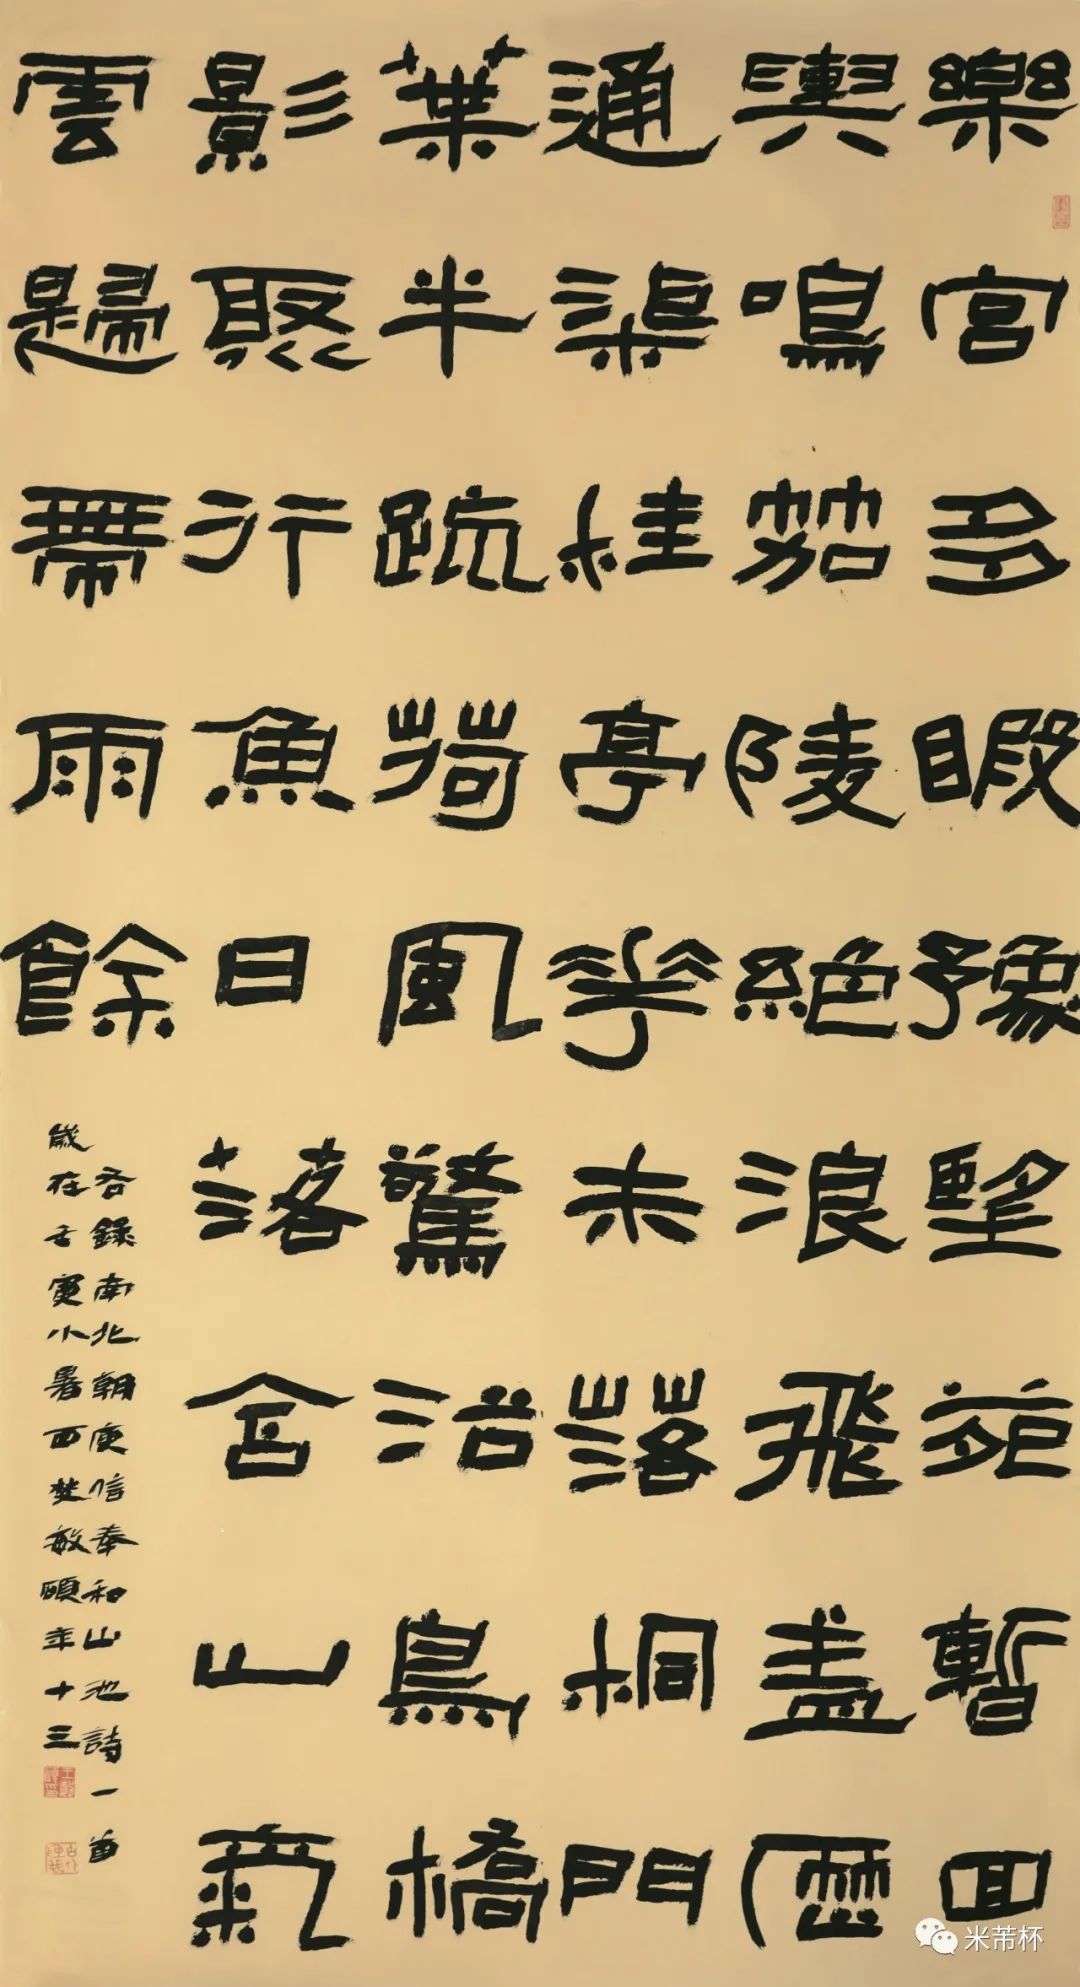 樂宮多睱豫望苑暫回
輿鳴笳陵絕浪飛盖歷
通渠桂亭花未落桐門
葉半疏荷風驚沿鳥橋
影聚行魚日落含山氣
雲歸帶雨餘
右錄南北朝庾信奉和山池詩一首
歲在壬寅小暑西楚敏頤年十三
米芾杯